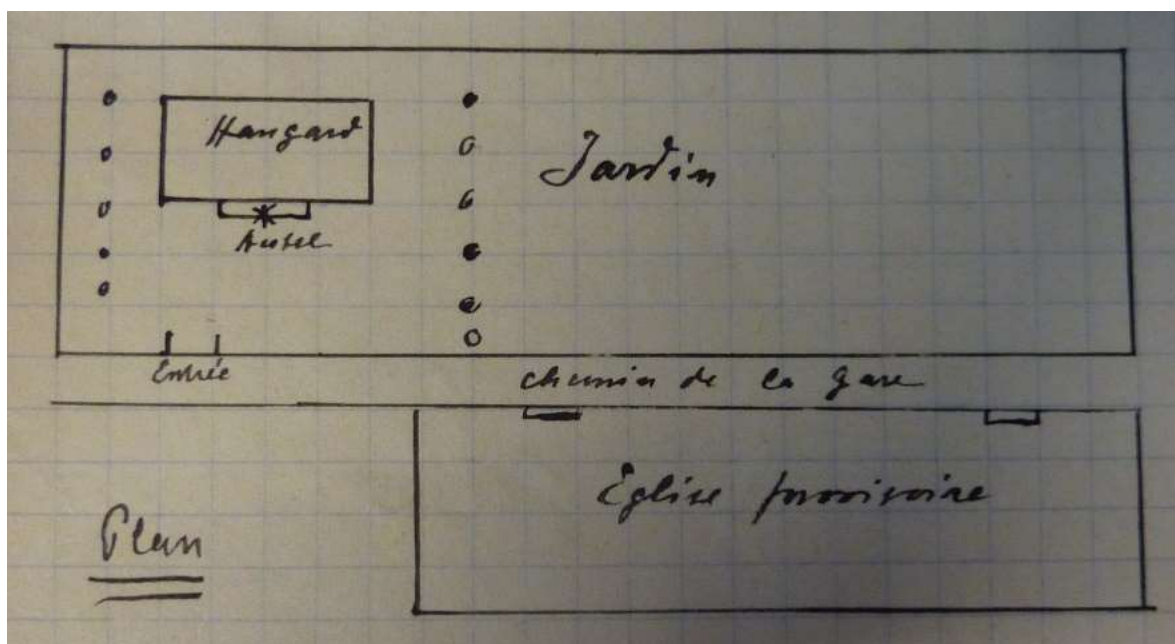 Hangard
Jardin
Autel
Entrée
chemin de la gare
Eglise provisoire
Plan